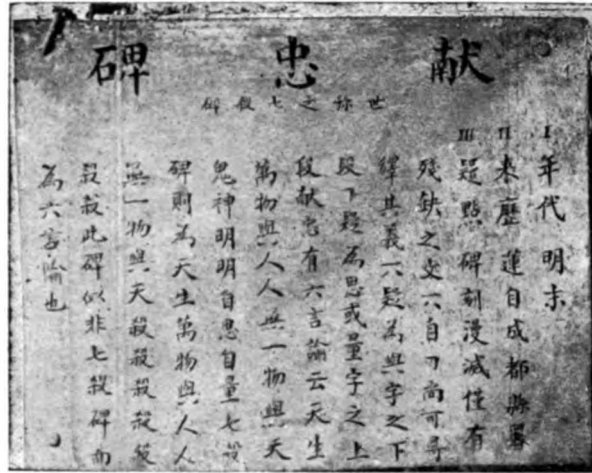 献忠碑
世称之七殺碑
I 年代 明末
II 來歷 運自成都縣署
III 疑點 碑刻漫滅僅有
殘缺之文六自刀尚可尋
繹其義六疑為與字之下
段刀疑為思或量字之上
段献忠有六言諭云天生
萬物與人人無一物與天
鬼神明明自思自量七殺
碑則為天生萬物與人人
無一物與天殺殺殺殺殺
殺殺此碑似非七殺碑而
為六言諭也